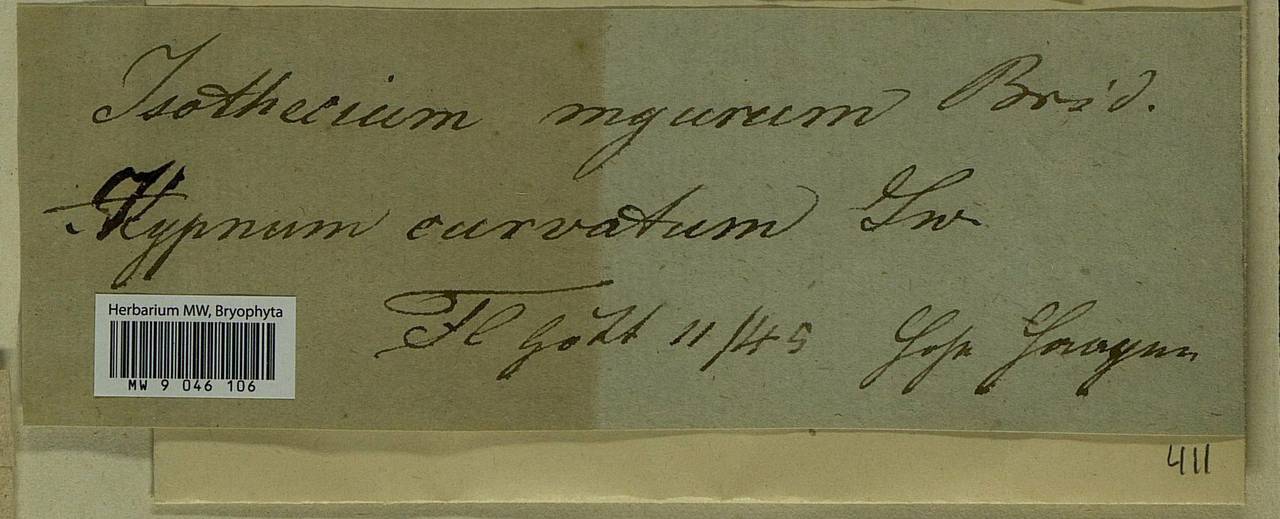 Isothecium myurum Brid.
Hypnum curvatum Sw.
Herbarium MW, Bryophyta
MW 9 046 106
Fl Gött 11/45
411